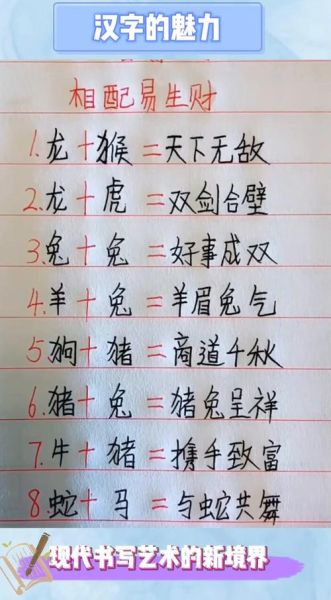 汉字的魅力
相配易生财
1.龙+猴=天下无敌
2.龙+虎=双剑合壁
3.兔+兔=好事成双
4.羊+兔=羊眉兔气
5.狗+猪=商道千秋
6.猪+兔=猪兔呈祥
7.牛+猪=携手致富
8.蛇+马=与蛇共舞
现代书写艺术的新境界